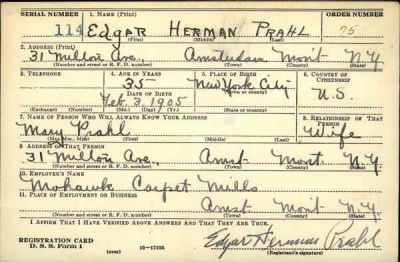 SERIAL NUMBER 1. NAME (Print) ORDER NUMBER
114 EDGAR HERMAN PRAHL 75
(First) (Middle) (Last)
2. ADDRESS (Print)
31 Milton Ave., Amsterdam Mont N.Y.
(Number and street or R. F. D. number) (Town) (County) (State)
3. TELEPHONE 4. AGE IN YEARS 5. PLACE OF BIRTH 6. COUNTRY OF CITIZENSHIP
35 New York City
DATE OF BIRTH (Town or county) U.S.
Feb. 3, 1905
(Exchange) (Number) (Mo.) (Day) (Yr.) (State or country)
7. NAME OF PERSON WHO WILL ALWAYS KNOW YOUR ADDRESS 8. RELATIONSHIP OF THAT PERSON
Mary Prahl Wife
(Mr., Mrs., Miss) (First) (Middle) (Last)
9. ADDRESS OF THAT PERSON
31 Milton Ave., Amst. Mont. N.Y.
(Number and street or R. F. D. number) (Town) (County) (State)
10. EMPLOYER'S NAME
Mohawk Carpet Mills
11. PLACE OF EMPLOYMENT OR BUSINESS
Amst. Mont N.Y.
(Number and street or R. F. D. number) (Town) (County) (State)
I AFFIRM THAT I HAVE VERIFIED ABOVE ANSWERS AND THAT THEY ARE TRUE.
REGISTRATION CARD Edgar Herman Prahl
D. S. S. Form 1 (over) 16-17105 (Registrant's signature)